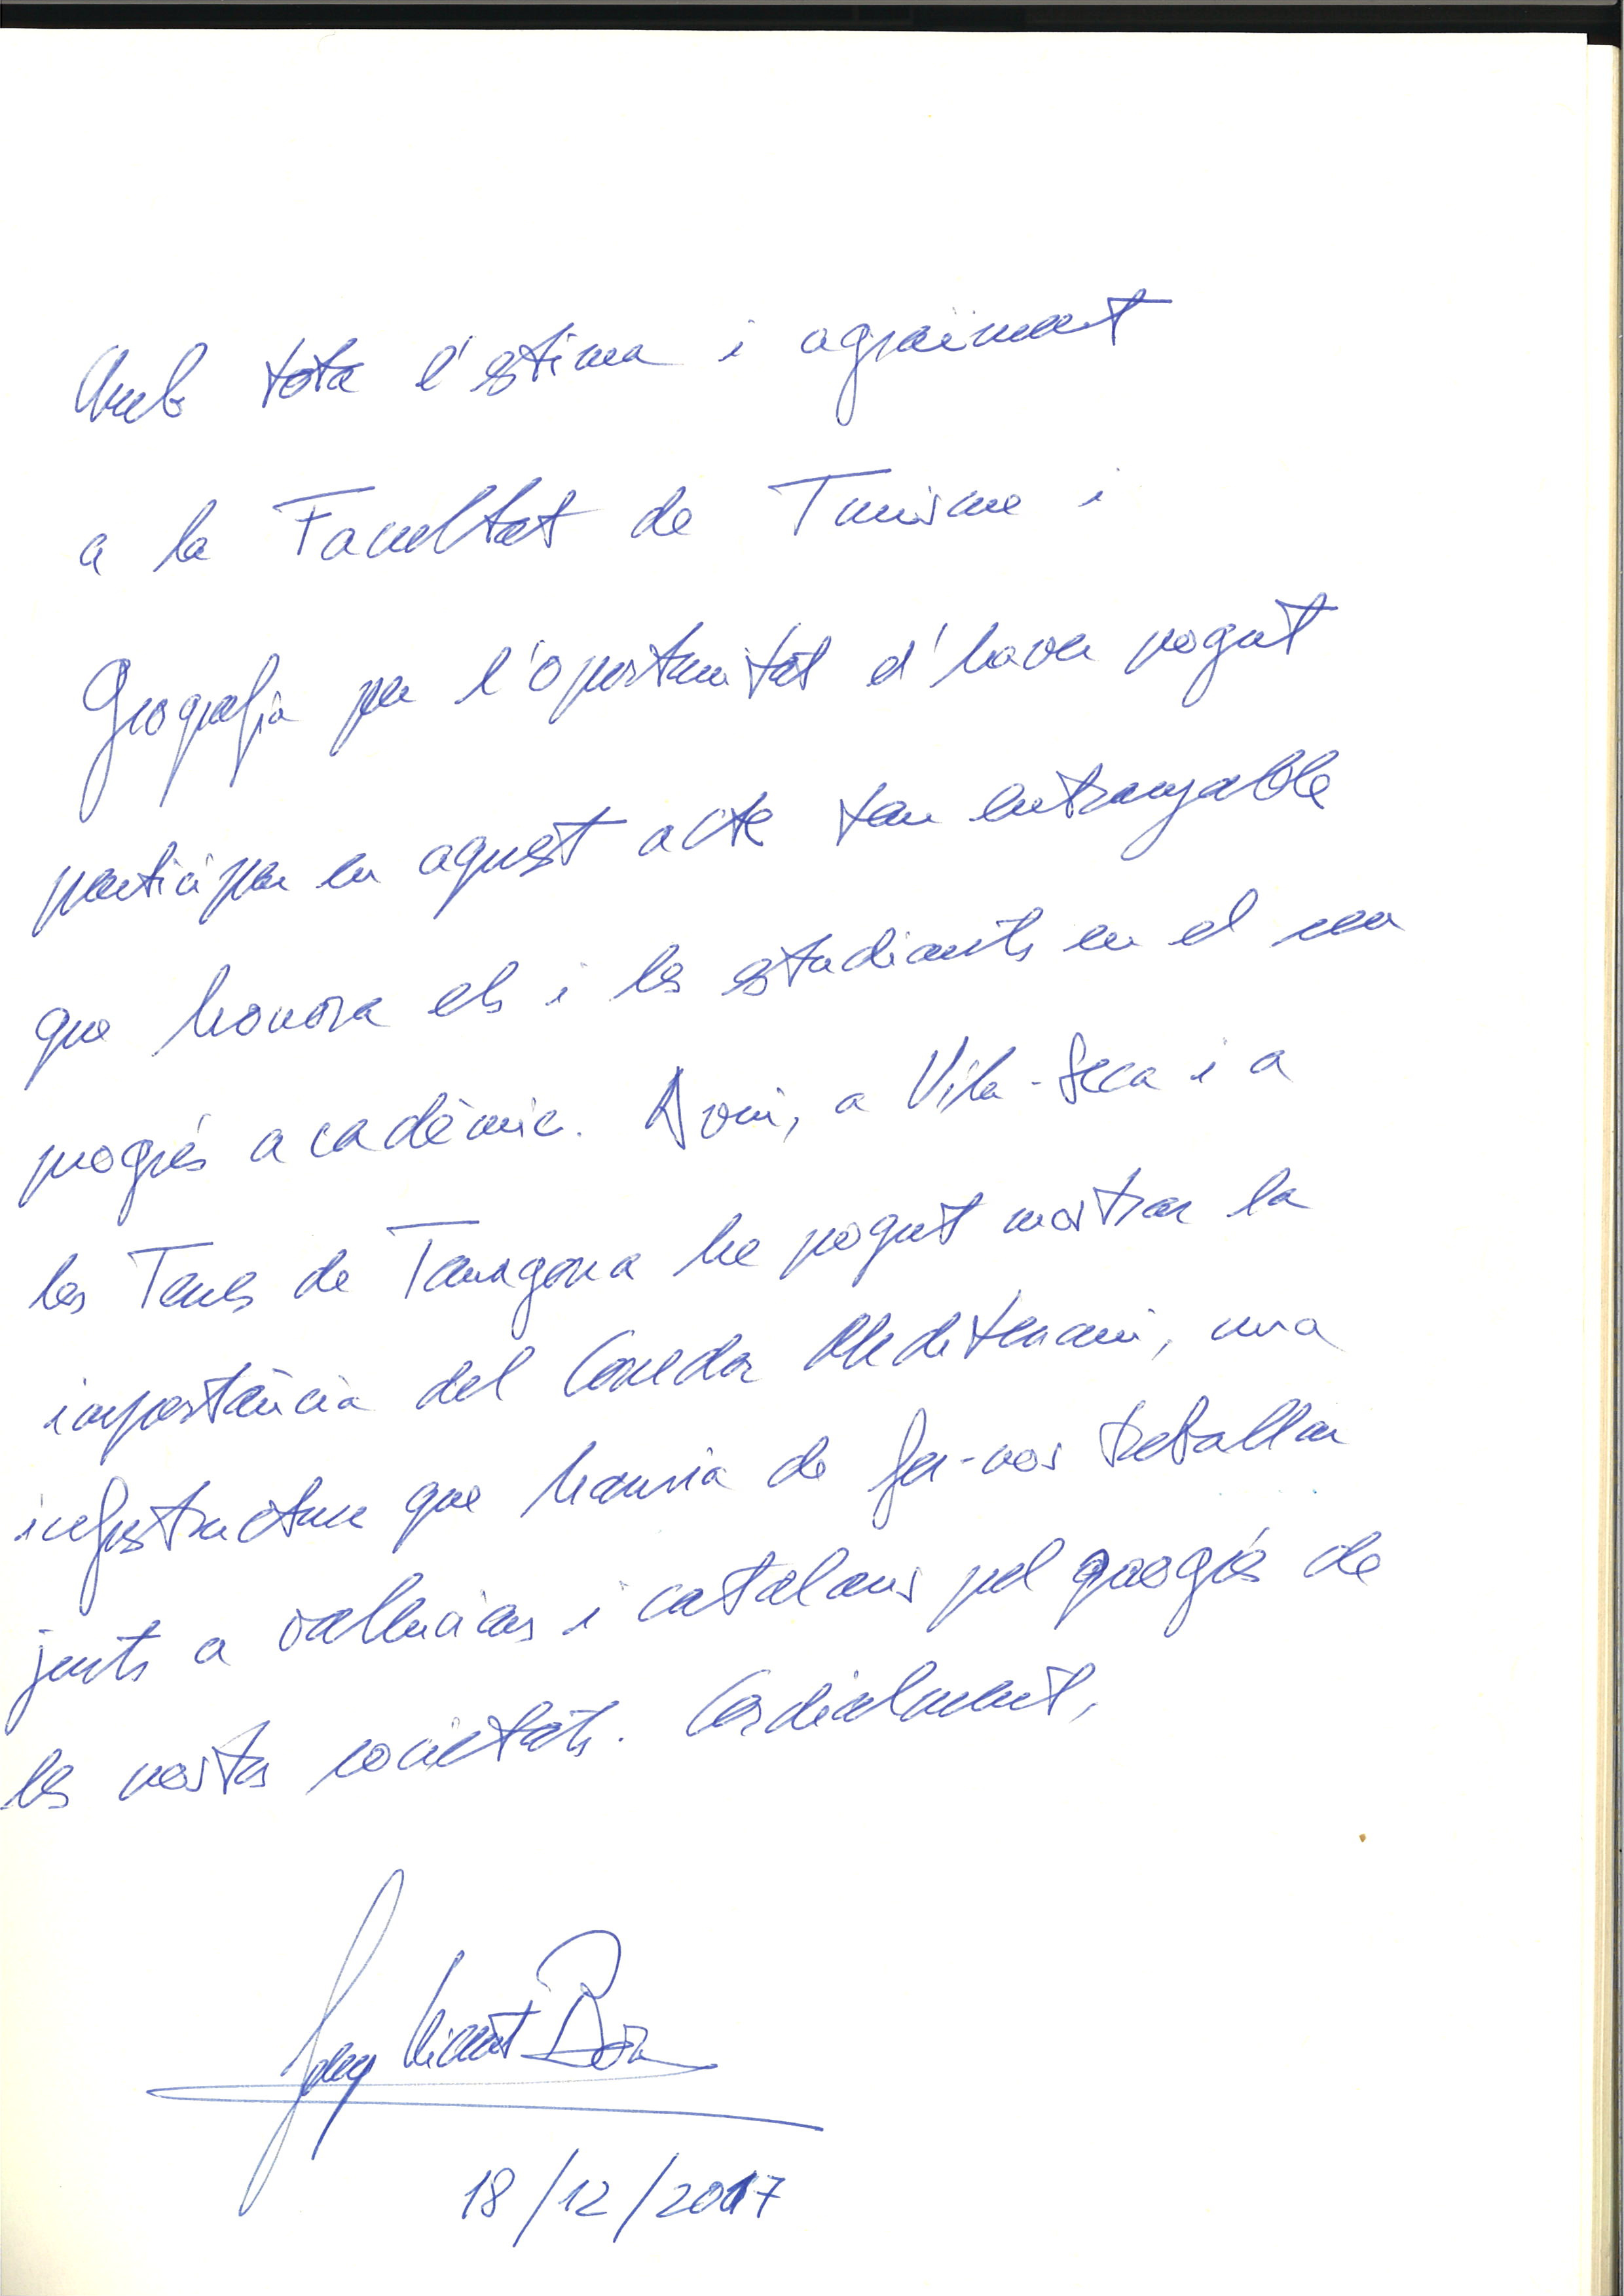 Amb tota l'estima i agraïment
a la Facultat de Turisme i
Geografia per l'oportunitat d'haver pogut
participar en aquest acte tan entranyable
que honora els i les estudiants en el seu
progrés acadèmic. Avui, a Vila-Seca i a
les Terres de Tarragona he pogut mostrar la
importància del Corredor Mediterrani, una
infrastructura que hauria de fer-nos treballar
junts a valencians i catalans pel progrés de
les nostres societats. Cordialment,
Josep Vicent Boira
18/12/2017